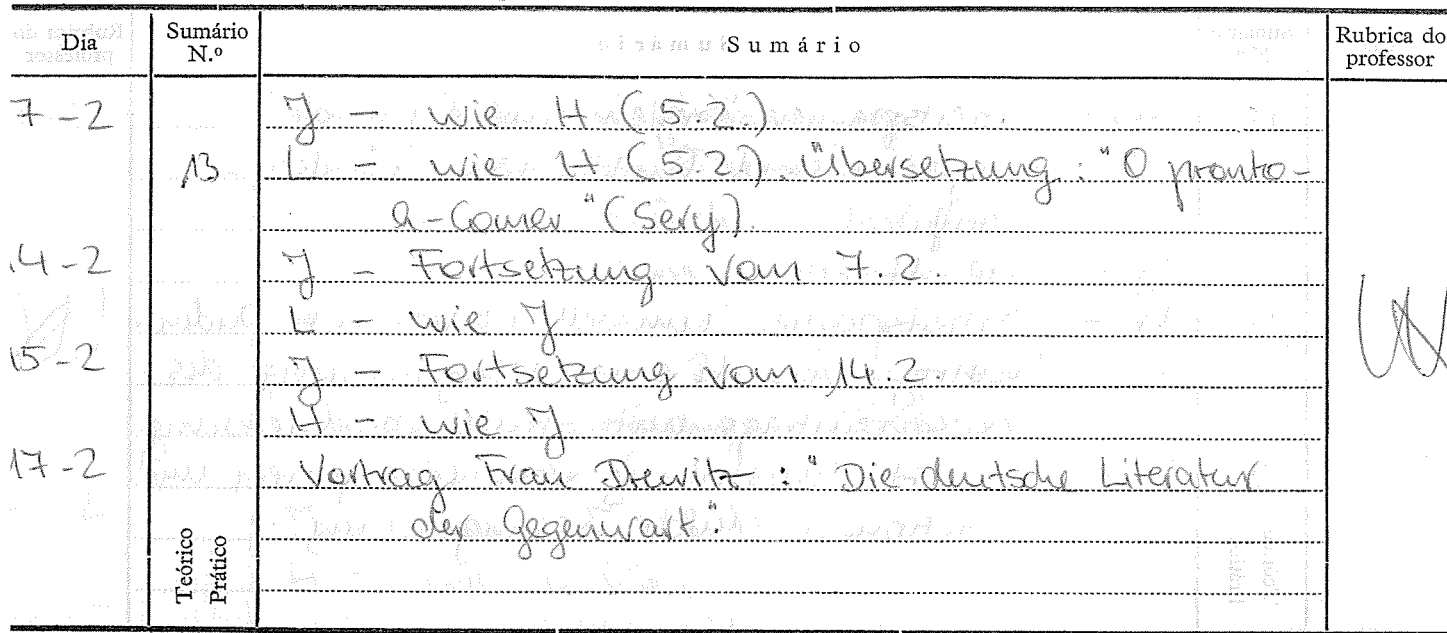 Dia Sumário N.º Sumário Rubrica do professor
7-2 J - wie H (5.2.)
13 L - wie H (5.2). Übersetzung: "O pronto-
a-Comer" (Sery)
14-2 J - Fortsetzung vom 7.2.
L - wie J
15-2 J - Fortsetzung vom 14.2.
H - wie J
17-2 Vortrag Frau Drewitz: "Die deutsche Literatur
der Gegenwart."
Teórico
Prático